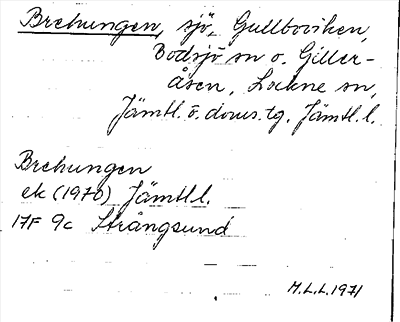 Brehungen, sjö, Gullboviken,
Bodsjö sn o. Giller-
åsen, Lockne sn,
Jämtl. ö. doms.tg. Jämtl.l.
Brehungen
ek (1970) Jämtl.l.
17F 9c Strångsund
M.L.L. 1971